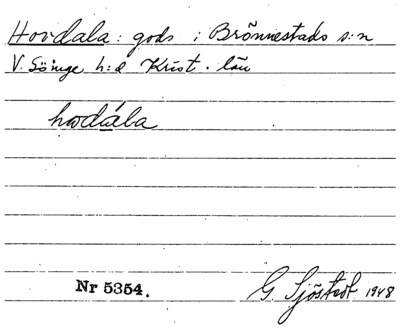 Hovdala: gods i Brönnestads s:n
V. Göinge h:d Krist. län
hωdála
Nr 5354.
G. Sjöstedt 1948